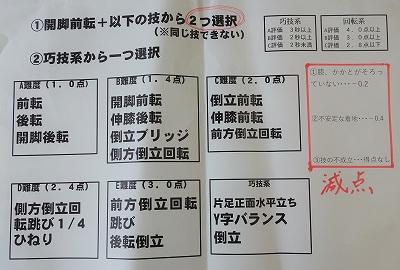 ①開脚前転＋以下の技から２つ選択
（※同じ技できない）
②巧技系から一つ選択
巧技系
A評価 ３秒以上
B評価 ２秒以上
C評価 ２秒未満
回転系
A評価 ４．０点以上
B評価 ３．０点以上
C評価 ２．８点以下
A難度（１．０点）
前転
後転
開脚後転
B難度（１．４点）
開脚前転
伸膝後転
倒立ブリッジ
側方倒立回転
C難度（２．０点）
倒立前転
伸膝前転
前方倒立回転
①膝、かかとがそろっ
ていない・・・・0.2
②不安定な着地・・・0.4
③技の不成立・・・得点なし
減点
D難度（２．４点）
側方倒立回
転跳び１/４
ひねり
E難度（３．０点）
前方倒立回転
跳び
後転倒立
巧技系
片足正面水平立ち
Y字バランス
倒立